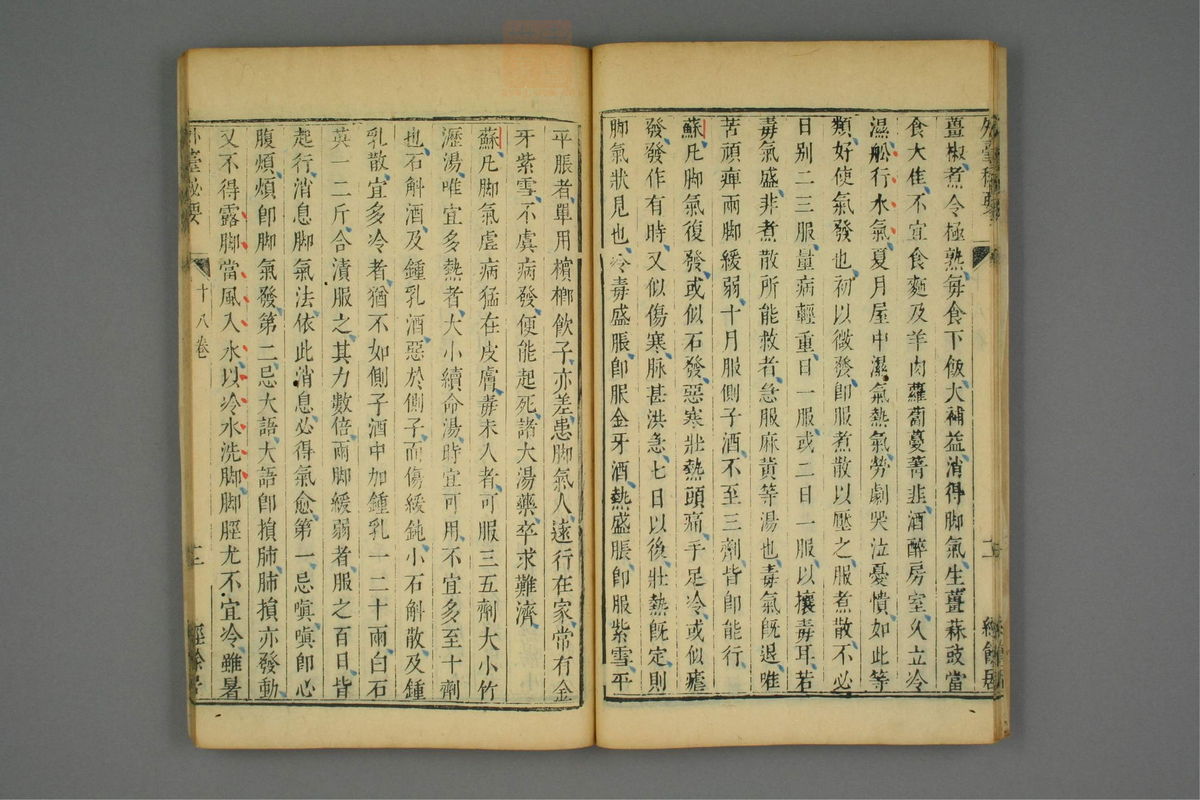 薑椒煮令極熟每食下飯大補益消得脚氣生薑蘇豉當
食大佳不宜食麵及羊肉蘿蔔蔓菁韭酒醉房室久立冷
濕舩行水氣夏月屋中濕氣熱氣勞劇哭泣憂憒如此等
類好使氣發也初以微發卽服煮散以壓之服煮散不必
日別二三服量病輕重日一服或二日一服以攘毒耳若
毒氣盛非煮散所能救者急服麻黃等湯也毒氣旣退唯
苦頑痺兩脚緩弱十月服側子酒不至三劑皆卽能行
蘇凡脚氣復發或似石發惡寒壯熱頭痛手足冷或似瘧
發發作有時又似傷寒脉甚洪急七日以後壯熱旣定則
脚氣狀見也冷毒盛脹卽服金牙酒熱盛脹卽服紫雪平
平脹者單用檳榔飲子亦差患脚氣人遠行在家常有金
牙紫雪不虞病發便能起死諸大湯藥卒求難濟
蘇凡脚氣虛病猛在皮膚毒未入者可服三五劑大小竹
瀝湯唯宜多熱者大小續命湯時宜可用不宜多至十劑
也石斛酒及鍾乳酒惡於側子而傷緩鈍小石斛散及鍾
乳散宜多冷者猶不如側子酒中加鍾乳一二十兩白石
英一二斤合漬服之其力數倍兩脚緩弱者服之百日皆
起行消息脚氣法依此消息必得氣愈第一忌嗔嗔卽心
腹煩煩卽脚氣發第二忌大語大語卽損肺肺損亦發動
又不得露脚當風入水以冷水洗脚脚脛尤不宜冷雖暑
外臺秘要
十八卷
十二
經餘居